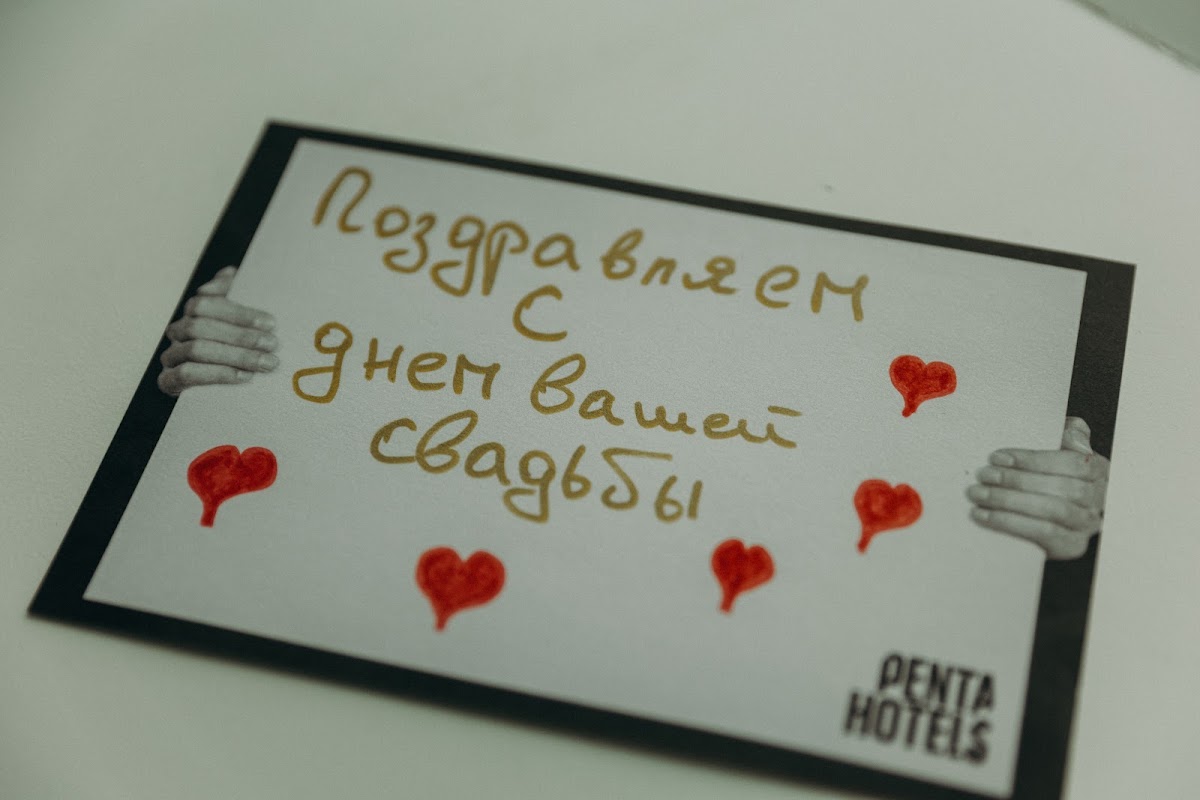 Поздравляем
с
днем вашей
свадьбы
PENTA
HOTELS